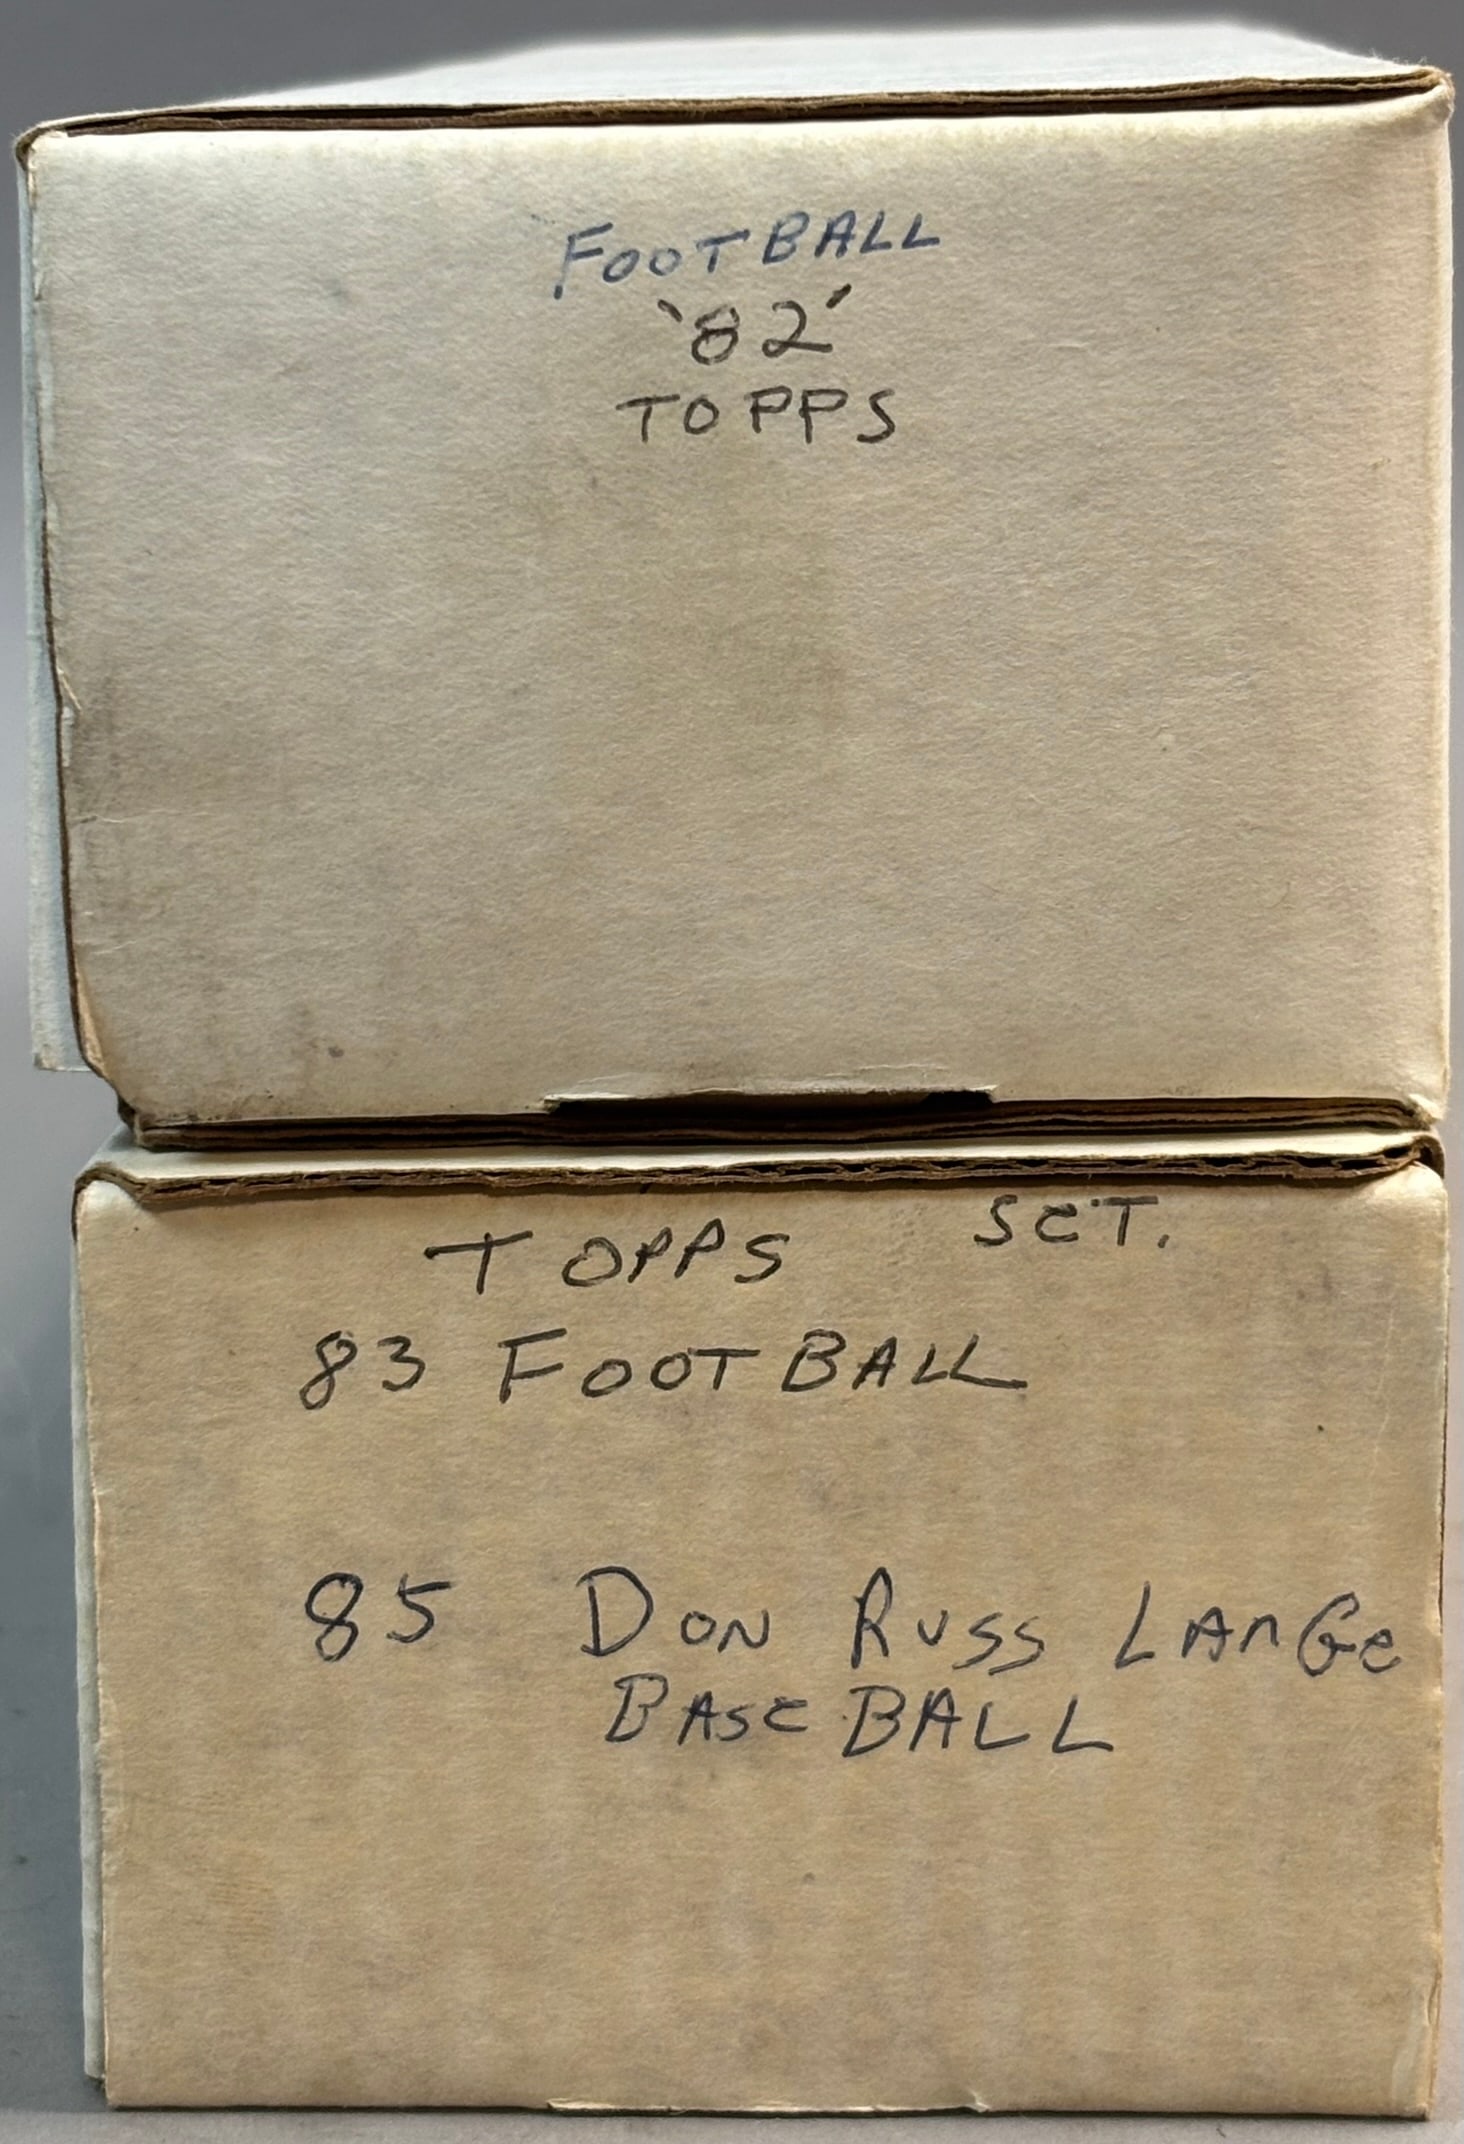 FOOTBALL
'82'
TOPPS
TOPPS SET.
83 FOOTBALL
85 DON RUSS LARGe
BASE BALL